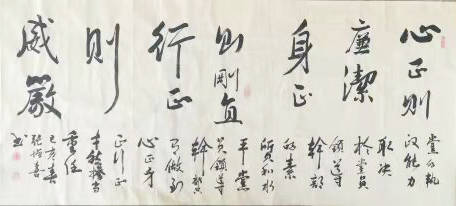 心正則
廉潔
身正
則剛直
行正
則
威嚴
黨的執
政能力
取决
於黨員
領導
幹部
的素
質和水
平黨
員領導
幹部
心正身
正行正
才能擔当
重任
己亥春
书